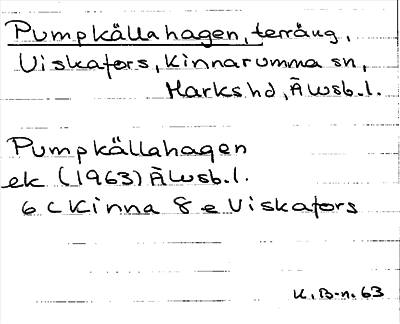 Pumpkällahagen, terräng,
Viskafors, Kinnarumma sn,
Marks hd, Älvsb. l.
Pumpkällahagen
ek (1963) Älvsb. l.
6 C Kinna 8 e Viskafors
K. B-n. 63